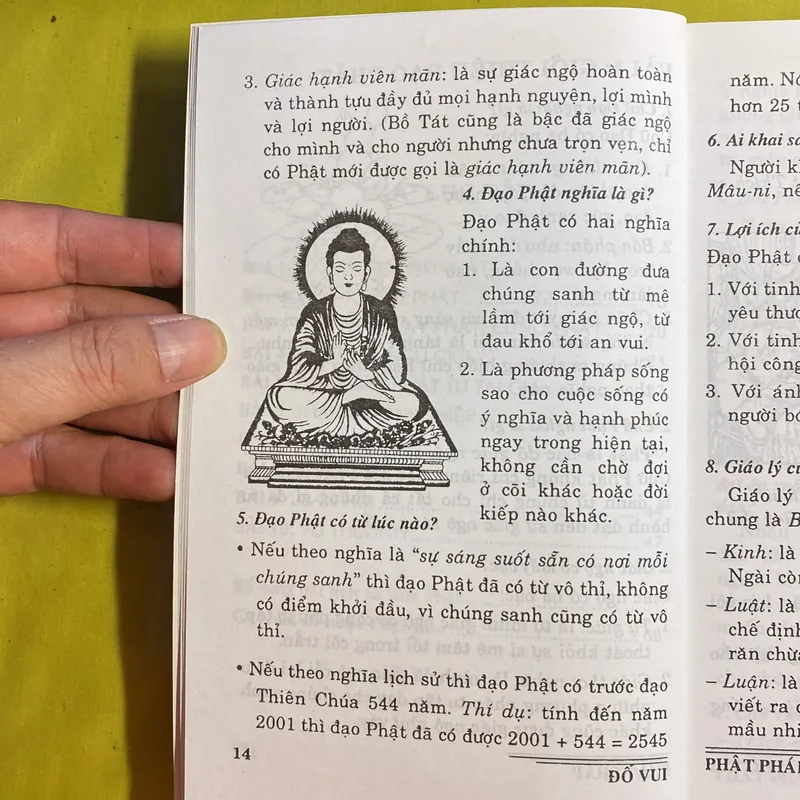 3. Giác hạnh viên mãn: là sự giác ngộ hoàn toàn
và thành tựu đầy đủ mọi hạnh nguyện, lợi mình
và lợi người. (Bồ Tát cũng là bậc đã giác ngộ
cho mình và cho người nhưng chưa trọn vẹn, chỉ
có Phật mới được gọi là giác hạnh viên mãn).
4. Đạo Phật nghĩa là gì?
Đạo Phật có hai nghĩa
chính:
1. Là con đường đưa
chúng sanh từ mê
lầm tới giác ngộ, từ
đau khổ tới an vui.
2. Là phương pháp sống
sao cho cuộc sống có
ý nghĩa và hạnh phúc
ngay trong hiện tại,
không cần chờ đợi
ở cõi khác hoặc đời
kiếp nào khác.
5. Đạo Phật có từ lúc nào?
• Nếu theo nghĩa là “sự sáng suốt sẵn có nơi mỗi
chúng sanh” thì đạo Phật đã có từ vô thỉ, không
có điểm khởi đầu, vì chúng sanh cũng có từ vô
thỉ.
• Nếu theo nghĩa lịch sử thì đạo Phật có trước đạo
Thiên Chúa 544 năm. Thí dụ: tính đến năm
2001 thì đạo Phật đã có được 2001 + 544 = 2545
14
ĐỐ VUI
năm.
hơn 25
6. Ai khai
Người
Mâu-ni,
7. Lợi ích
Đạo Phật
1. Với
yêu
2. Với
hội
3. Với
người
8. Giáo lý
Giáo lý
chung là
– Kinh: là
Ngài
– Luật: là
chế định
răn
– Luận: là
viết ra
mầu
PHẬT